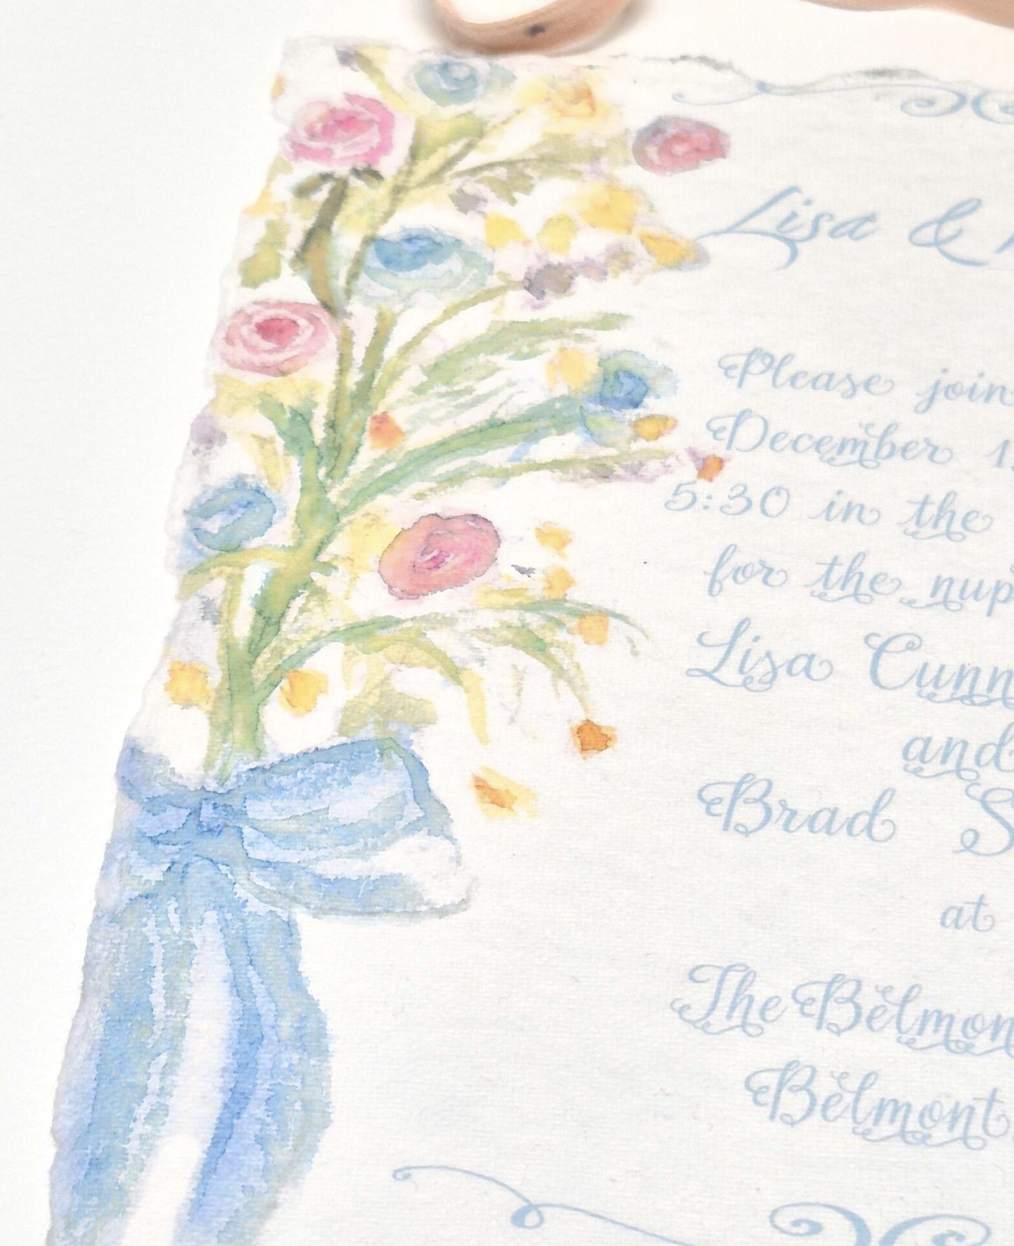 Lisa &
Please join
December 1
5:30 in the
for the nup
Lisa Cunn
and
Brad S
at
The Belmon
Belmont